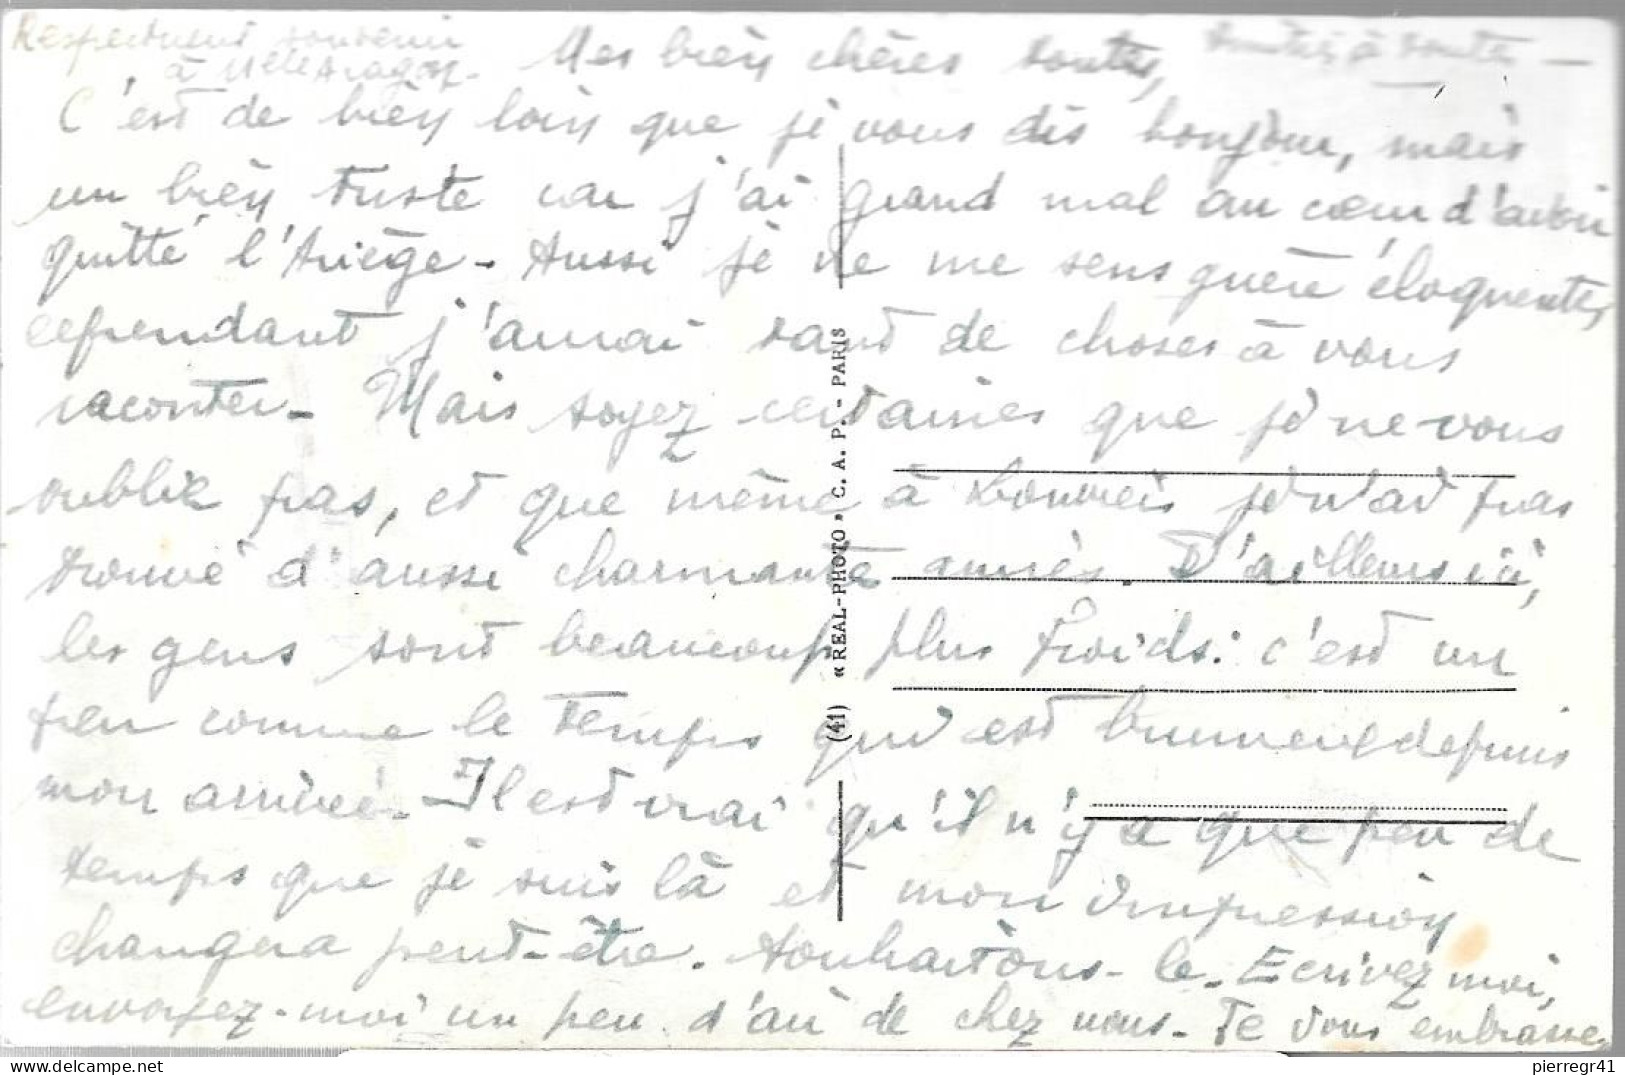 Respectueux souvenir
à Melle Aragon.
Mes bien chères toutes,
toutes à toutes —
C'est de bien loin que je vous dis bonjour, mais
un bien triste car j'ai grand mal au cœur d'avoir
quitté l'Ariège - Aussi je ne me sens guère éloquente,
cependant j'aurai tant de choses à vous
raconter - Mais soyez certaines que je ne vous
oublie pas, et que même à je n'ai pas
trouvé d'aussi charmante amies. D'ailleurs ici,
les gens sont beaucoup plus froids : c'est un
peu comme le temps qui est depuis
mon arrivée - Il est vrai qu'il n'y a que peu de
temps que je suis là et mon impression
changera peut-être. Souhaitons-le. Ecrivez moi,
envoyez-moi un peu d'air de chez nous - Je vous embrasse
(41) « REAL-PHOTO » C. A. P. - PARIS
www.delcampe.net
pierregr41